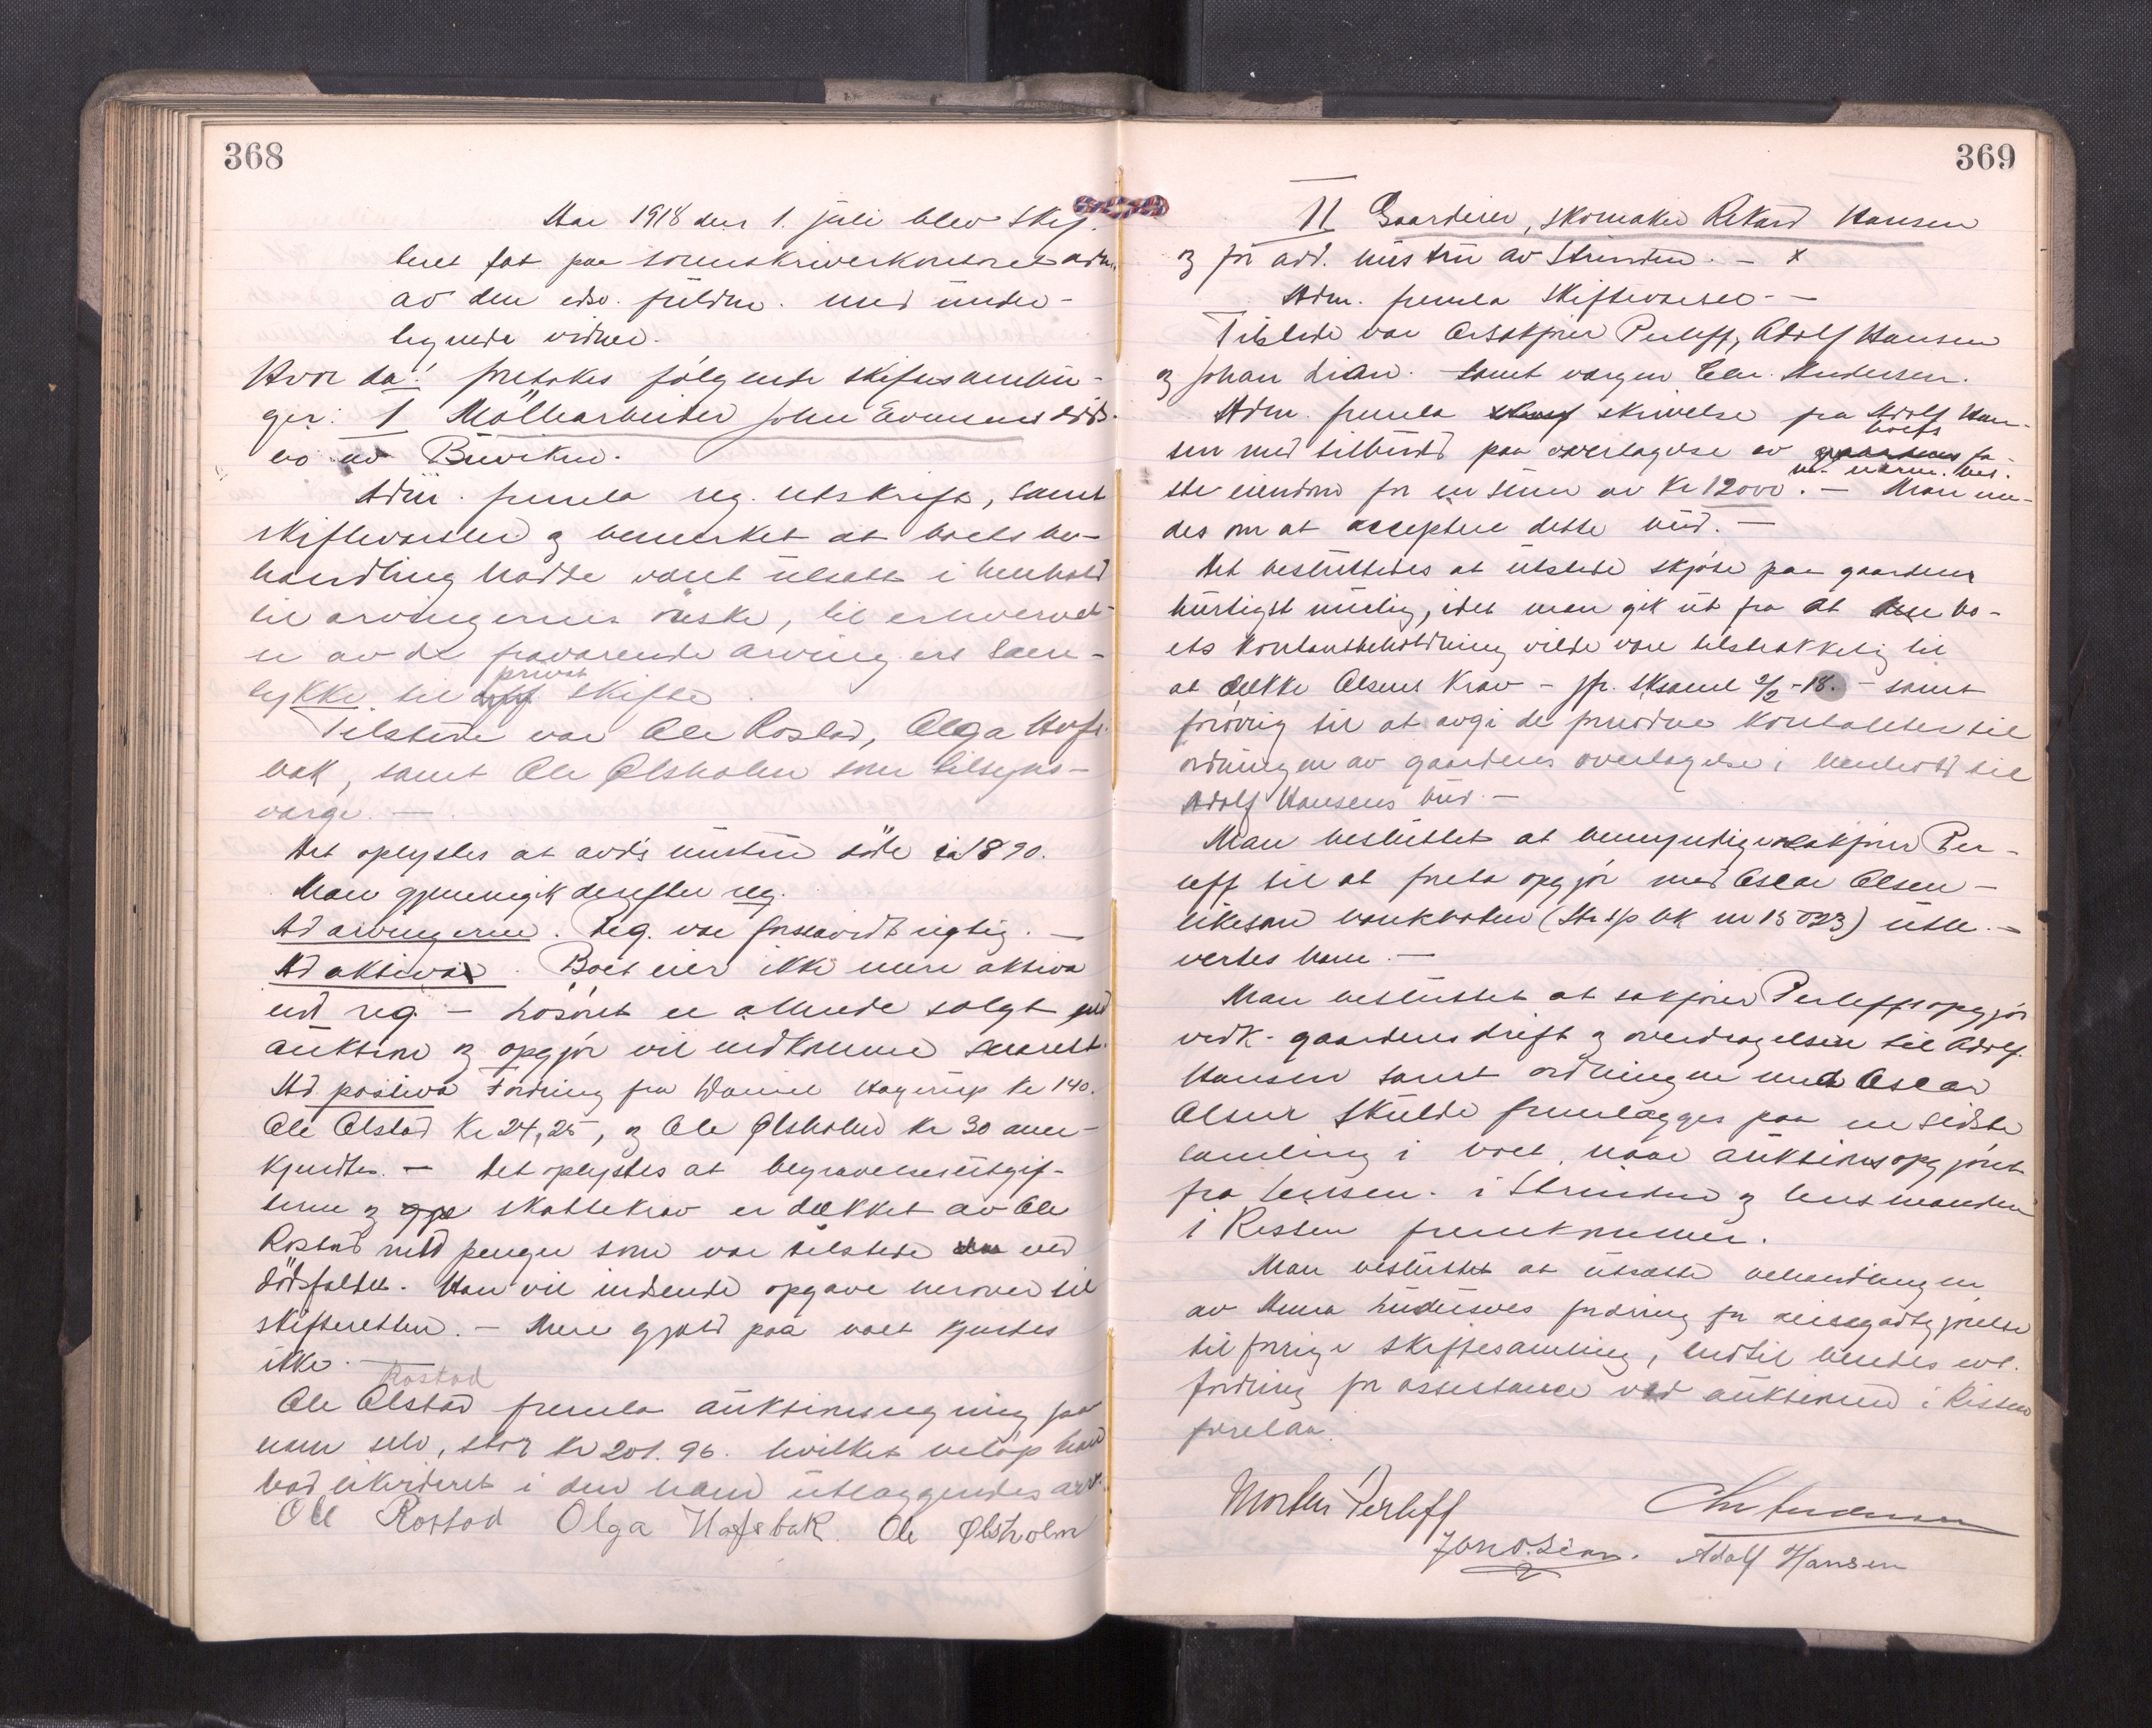 368
Aar 1918 den 1. juli blev skif-
teret sat paa sorenskriverkontoret adm.
av den edsv. fuldm. med under-
tegnede vidner.
Hvor da! foretokes følgende skiftesamlin-
ger: I Møllearbeider John Evensens døds-
bo av Buviken.
Adm. fremla reg. utskrift, samt
skiftevarsler og bemerket at boets be-
handling hadde været utsatt i henhold
til arvingernes ønske, til erhvervel-
se av de fraværende arvingers sam-
tykke til privat skifte.
Tilstede var Ole Rostad, Olga Hofs-
bak, samt Ole Ølsholm som tilsyns-
værge. —
Det oplystes at avd's hustru døde i 1890.
Man gjennemgik derefter reg.
Ad arvingerne. Reg. var forsaavidt rigtig. —
Ad aktiva. Boet eier ikke mere aktiva
end reg. — Løsøret er allerede solgt ved
auktion og opgjør vil indkomme snarest.
Ad passiva Fordring fra Daniel Hagerup kr 140.
Ole Olstad kr 24,25, og Ole Ølsholm kr 30 aner-
kjendtes. — Det oplystes at begravelsesutgif-
terne og skattekrav er dekket av Ole
Rostad med penger som var tilstede ved
dødsfaldet. Han vil indsende opgave herover til
skifteretten. — Mere gjæld paa boet kjendtes
ikke. —
Rostad
Ole Olstad fremla auktionsregning for
ham selv, stor kr 201.96. hvilket beløp han
bad likvideret i den ham utlæggendes arv.
Ole Rostad Olga Hofsbak. Ole Ølsholm
369
II Gaardeier, skomaker Rikard Hansen
og før avd. hustru av Strinden. — x
Adm. fremla skiftevarsel. —
Tilstede var O.r.sakfører Perleff, Adolf Hansen
og Johan Lian. Samt vergen Chr. Andersen.
Adm. fremla skrivelse fra Adolf Han-
sen med tilbud paa overtagelse av boets fa-
ste eiendom for en sum av kr 12000. — Man en-
des om at acceptere dette bud. —
Det besluttedes at utstede skjøte paa gaarden
hurtigst mulig, idet man gik ut fra at bo-
ets kontantbeholdning vilde være tilstrækkelig til
at dekke Olsens krav — jfr. sksaml 2/2-18. — samt
forøvrig til at avgi de fornødne kontanter til
ordningen av gaardens overtagelse i henhold til
Adolf Hansens bud. —
Man besluttet at bemyndige o.r.sakfører Per-
leff til at foreta opgjør med Oscar Olsen —
likesom bankboken (Str. sp bk nr 15023) utle-
vertes ham. —
Man besluttet at sakfører Perleffs opgjør
vedk. gaardens drift og overdragelsen til Adolf
Hansen samt ordningen med Oscar
Olsen skulde fremlægges paa en sidste
samling i boet, naar auktionsopgjøret
fra lensm. i Strinden og lensmanden
i Rissen fremkommer.
Man besluttet at utsætte behandlingen
av Anna fordring for reisegodtgjørelse
til forrige skiftesamling, indtil hendes evt.
fordring for assistance ved auktionen i Rissen
forelaa.
Morten Perleff Chr Andersen
Joh. O. Lian. Adolf Hansen